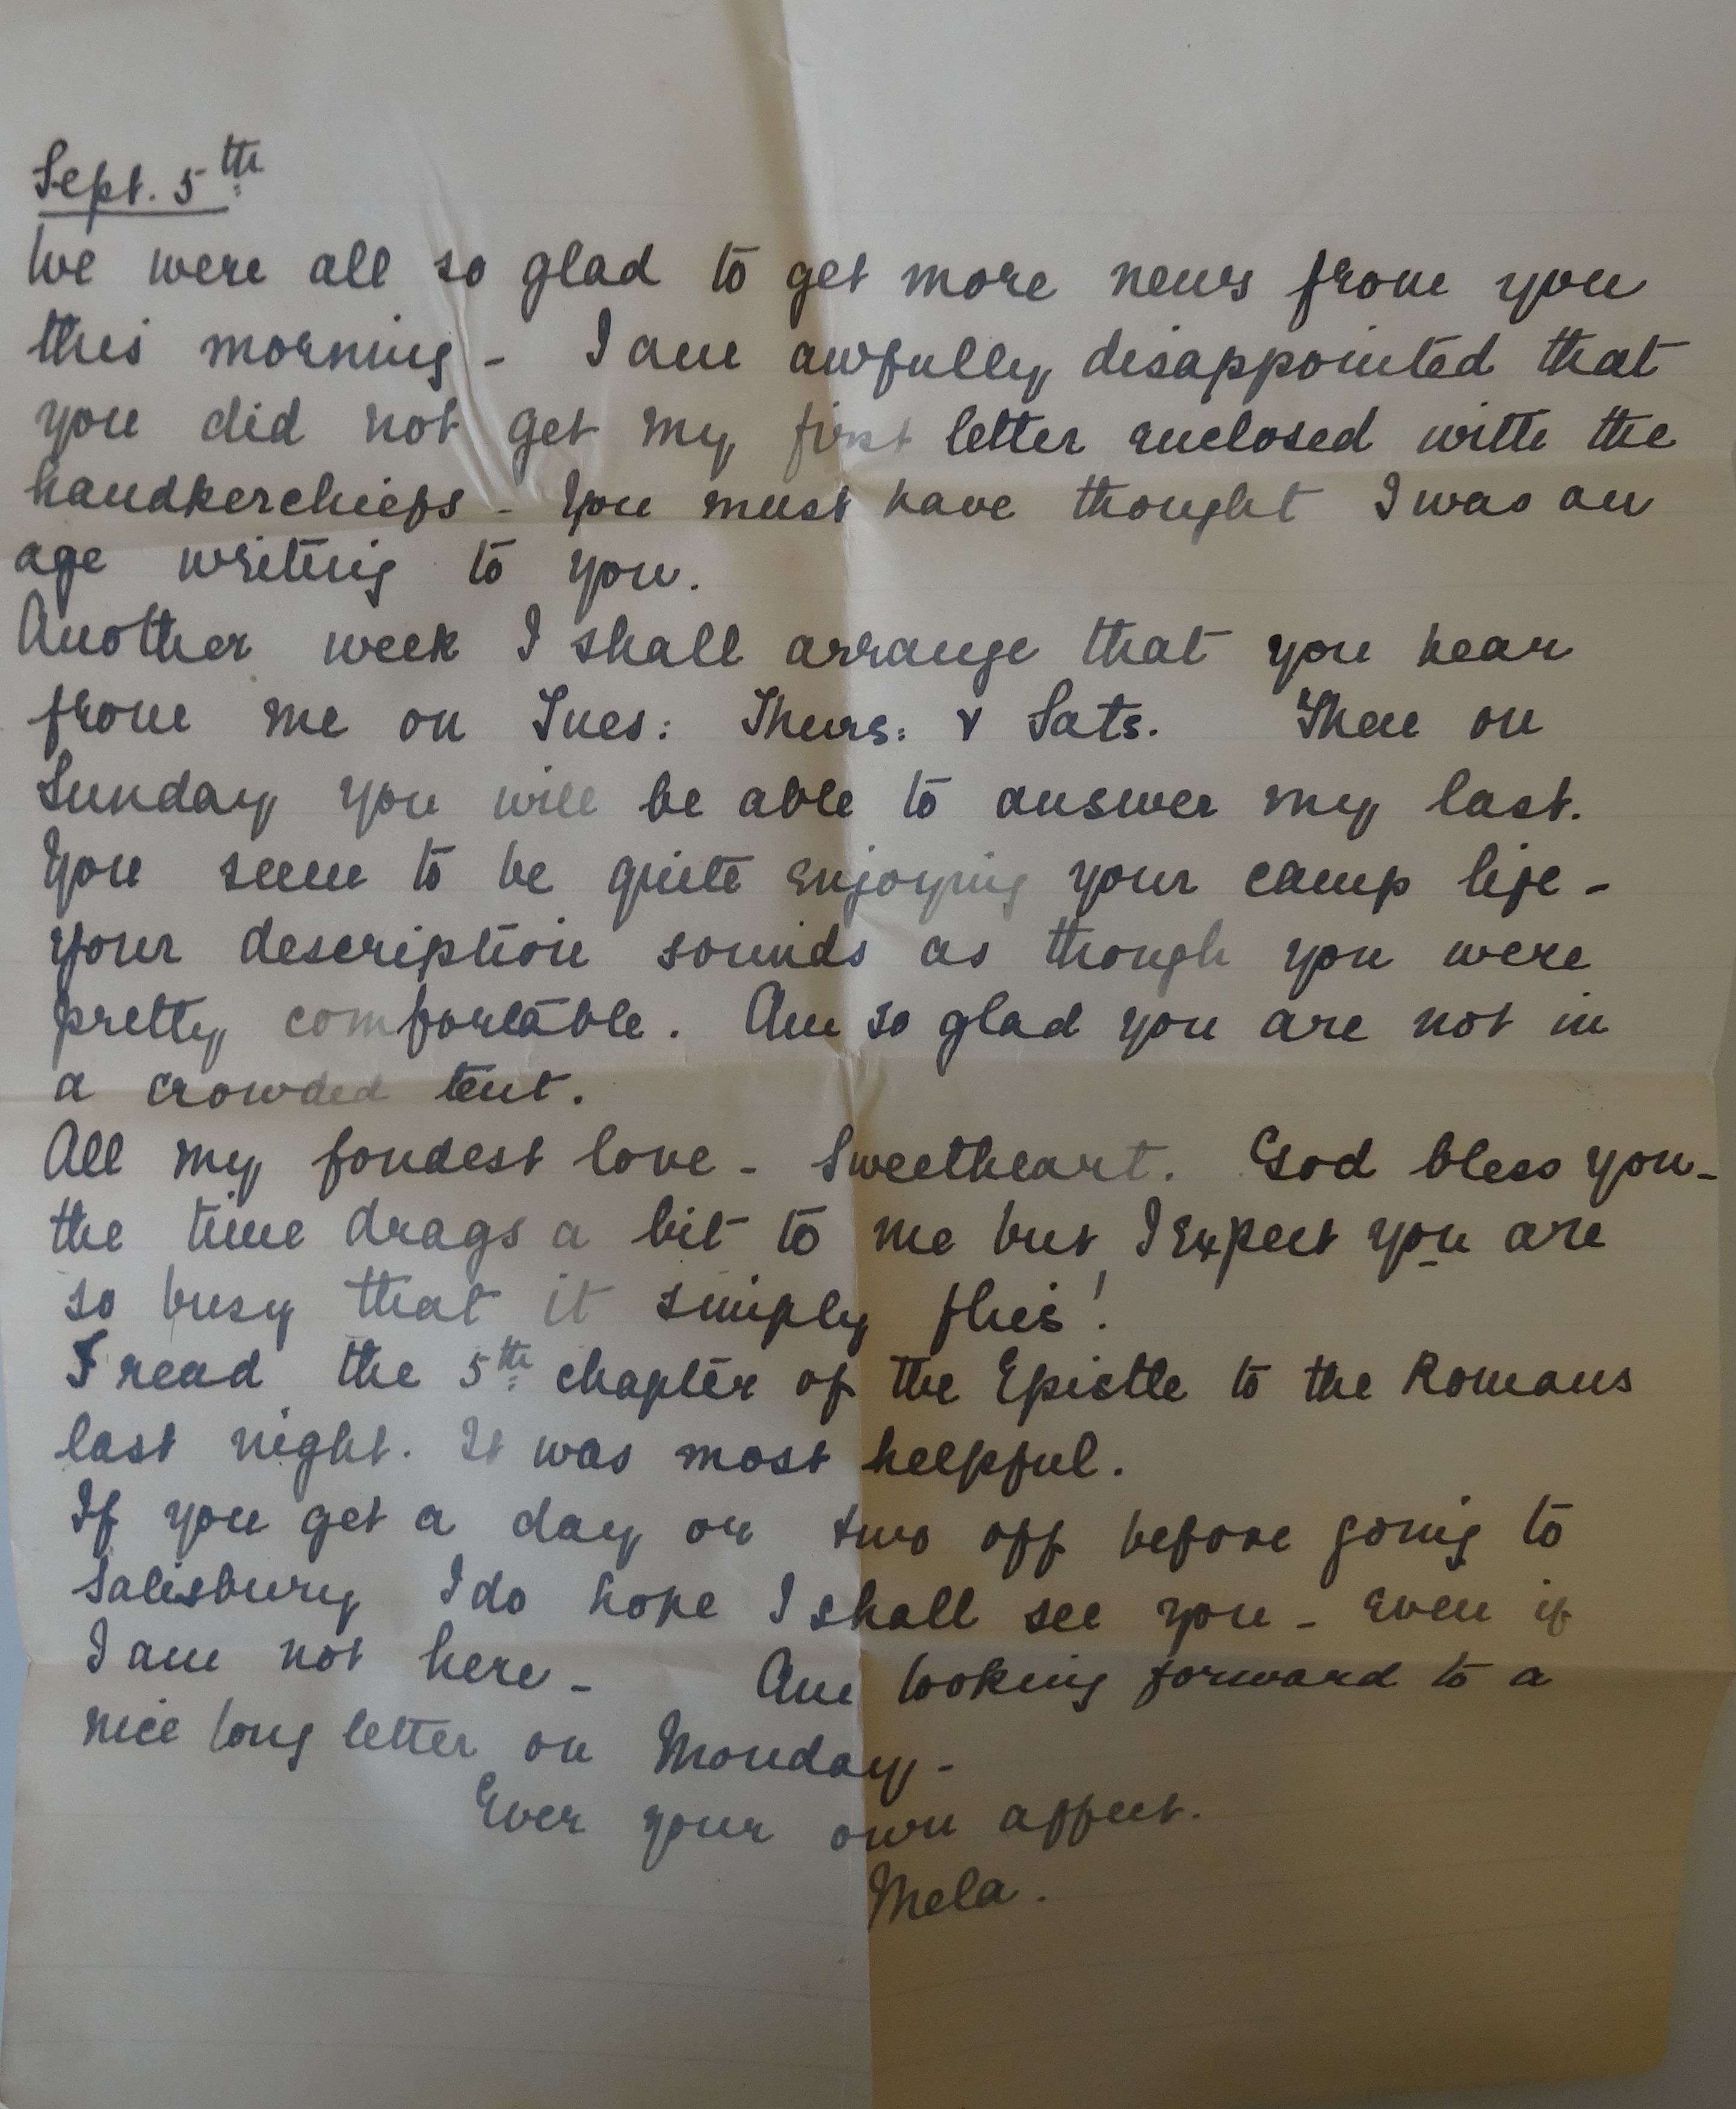 Sept. 5th
We were all so glad to get more news from you
this morning - I am awfully disappointed that
you did not get my first letter enclosed with the
handkerchiefs - You must have thought I was an
age writing to you.
Another week I shall arrange that you hear
from me on Tues: Thurs: & Sats. Then on
Sunday you will be able to answer my last.
You seem to be quite enjoying your camp life -
your description sounds as though you were
pretty comfortable. Am so glad you are not in
a crowded tent.
All my fondest love - Sweetheart. God bless you -
the time drags a bit to me but, I expect you are
so busy that it simply flies!
I read the 5th chapter of the Epistle to the Romans
last night. It was most helpful.
If you get a day or two off before going to
Salisbury I do hope I shall see you - Even if
I am not here - Am looking forward to a
nice long letter on Monday -
Ever your own affect.
Mela.